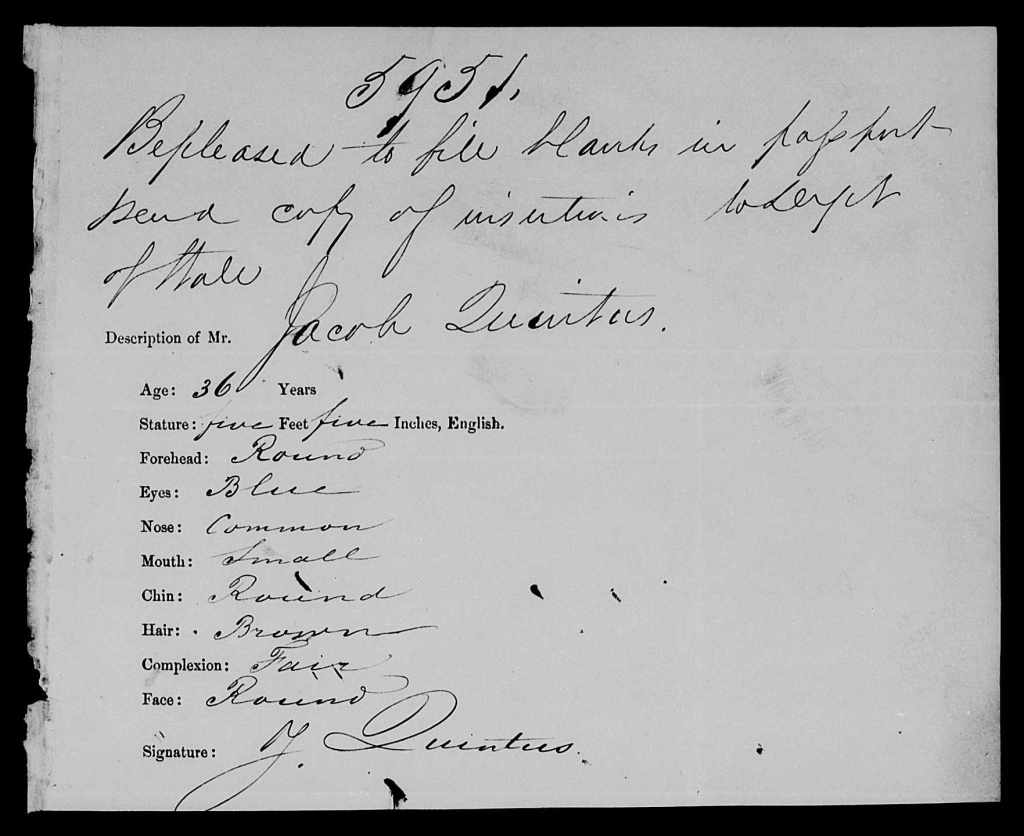 5951.
Be pleased to fill blanks in passport
send copy of insertions to Dept
of State
Description of Mr. Jacob Quintus.
Age: 36 Years
Stature: five Feet five Inches, English.
Forehead: Round
Eyes: Blue
Nose: Common
Mouth: Small
Chin: Round
Hair: Brown
Complexion: Fair
Face: Round
Signature: J. Quintus.